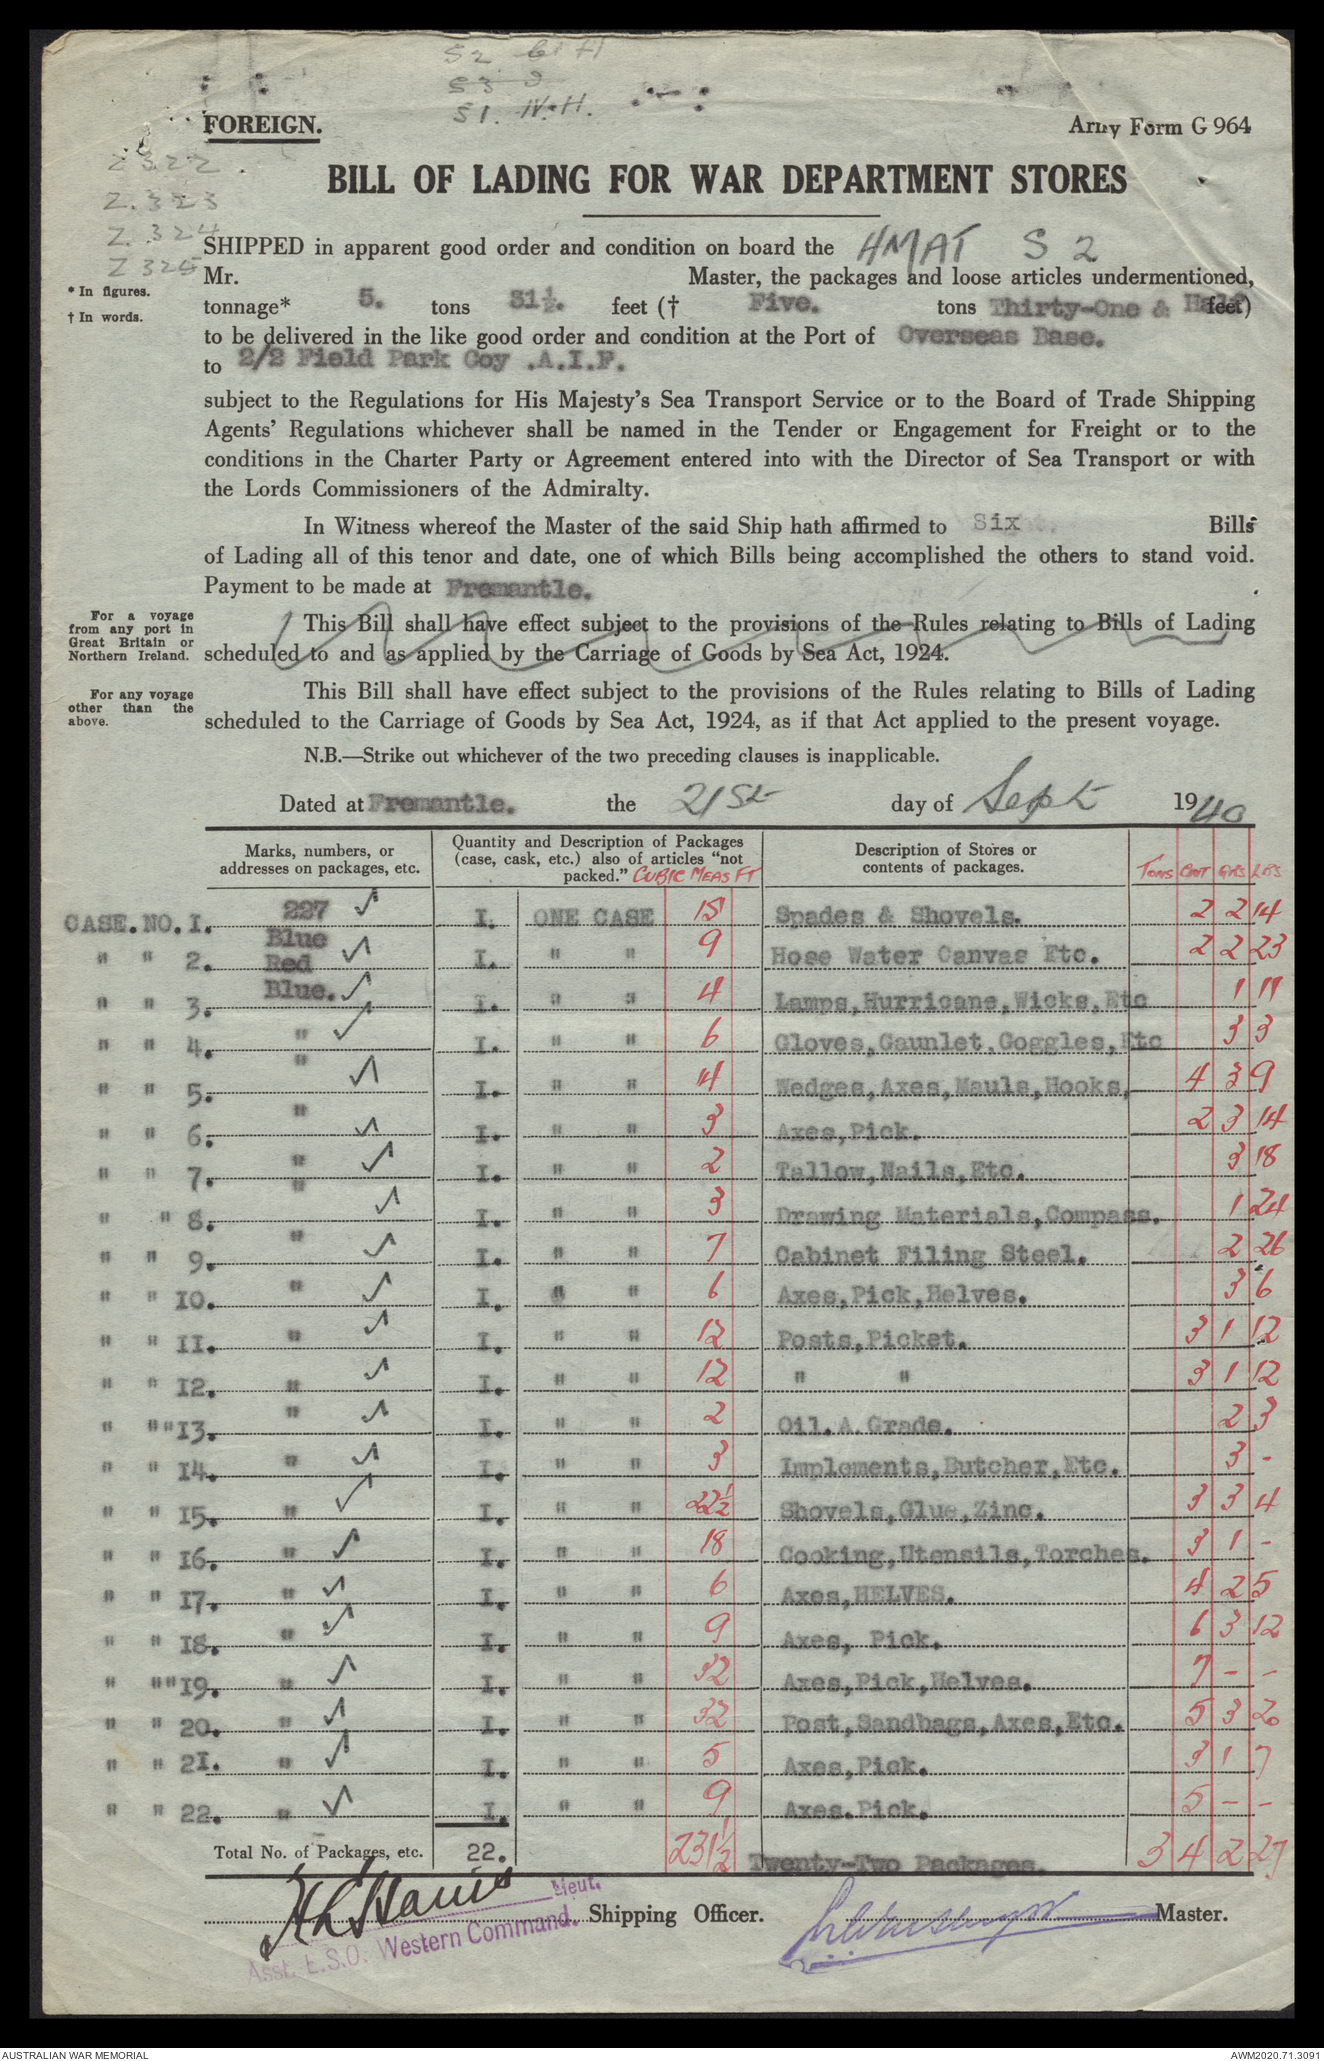 S2
S3
S1. IV.H.
FOREIGN.
Army Form G 964
Z 322
Z. 323
Z. 324
Z 325
BILL OF LADING FOR WAR DEPARTMENT STORES
SHIPPED in apparent good order and condition on board the HMAT S 2
Mr. Master, the packages and loose articles undermentioned,
* In figures.
† In words.
tonnage* 5. tons 31½. feet († Five. tons Thirty-One & Half feet)
to be delivered in the like good order and condition at the Port of Overseas Base.
to 2/2 Field Park Coy .A.I.F.
subject to the Regulations for His Majesty's Sea Transport Service or to the Board of Trade Shipping
Agents' Regulations whichever shall be named in the Tender or Engagement for Freight or to the
conditions in the Charter Party or Agreement entered into with the Director of Sea Transport or with
the Lords Commissioners of the Admiralty.
In Witness whereof the Master of the said Ship hath affirmed to Six Bills
of Lading all of this tenor and date, one of which Bills being accomplished the others to stand void.
Payment to be made at Fremantle.
For a voyage
from any port in
Great Britain or
Northern Ireland.
This Bill shall have effect subject to the provisions of the Rules relating to Bills of Lading
scheduled to and as applied by the Carriage of Goods by Sea Act, 1924.
For any voyage
other than the
above.
This Bill shall have effect subject to the provisions of the Rules relating to Bills of Lading
scheduled to the Carriage of Goods by Sea Act, 1924, as if that Act applied to the present voyage.
N.B.—Strike out whichever of the two preceding clauses is inapplicable.
Dated at Fremantle. the 21st day of Sept 1940
Marks, numbers, or
addresses on packages, etc.
Quantity and Description of Packages
(case, cask, etc.) also of articles "not
packed." CUBIC MEAS FT
Description of Stores or
contents of packages.
Tons CWT QRS LBS
CASE. NO. I. 227 ✓ I. ONE CASE 15 Spades & Shovels. 2 2 14
" " 2. Blue Red ✓ I. " " 9 Hose Water Canvas Etc. 2 2 23
" " 3. Blue. ✓ I. " " 4 Lamps,Hurricane,Wicks,Etc 1 11
" " 4. " ✓ I. " " 6 Gloves,Gaunlet.Goggles,Etc 3 3
" " 5. " ✓ I. " " 14 Wedges,Axes,Mauls,Hooks, 4 3 9
" " 6. " ✓ I. " " 3 Axes,Pick. 2 3 14
" " 7. " ✓ I. " " 2 Tallow,Nails,Etc. 3 18
" " 8. " ✓ I. " " 3 Drawing Materials,Compass. 1 24
" " 9. " ✓ I. " " 7 Cabinet Filing Steel. 2 26
" " 10. " ✓ I. " " 6 Axes,Pick,Helves. 3 6
" " 11. " ✓ I. " " 12 Posts,Picket. 3 1 12
" " 12. " ✓ I. " " 12 " " 3 1 12
" "" 13. " ✓ I. " " 2 Oil.A.Grade. 2 3
" " 14. " ✓ I. " " 3 Implements,Butcher,Etc. 3 -
" " 15. " ✓ I. " " 22½ Shovels,Glue,Zinc. 3 3 4
" " 16. " ✓ I. " " 18 Cooking,Utensils,Torches. 3 1 -
" " 17. " ✓ I. " " 6 Axes,HELVES. 4 2 5
" " 18. " ✓ I. " " 9 Axes, Pick. 6 3 12
" "" 19. " ✓ I. " " 32 Axes,Pick,Helves. 7 - -
" " 20. " ✓ I. " " 32 Post,Sandbags,Axes,Etc. 5 3 20
" " 21. " ✓ I. " " 5 Axes,Pick. 3 1 7
" " 22. " ✓ I. " " 9 Axes.Pick. 5 - -
Total No. of Packages, etc. 22. 231½ Twenty-Two Packages. 3 4 2 27
Lieut.
Shipping Officer. Master.
Asst. E.S.O. Western Command.
AUSTRALIAN WAR MEMORIAL AWM2020.71.3091